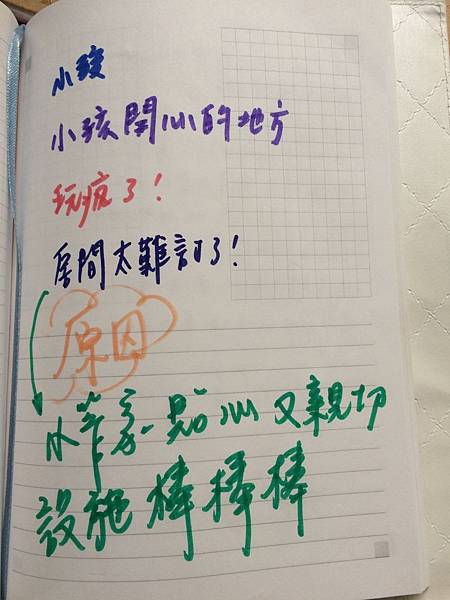 小孩
小孩開心的地方
玩瘋了！
房間太難訂了！
原因
小管家貼心又親切
設施棒棒棒